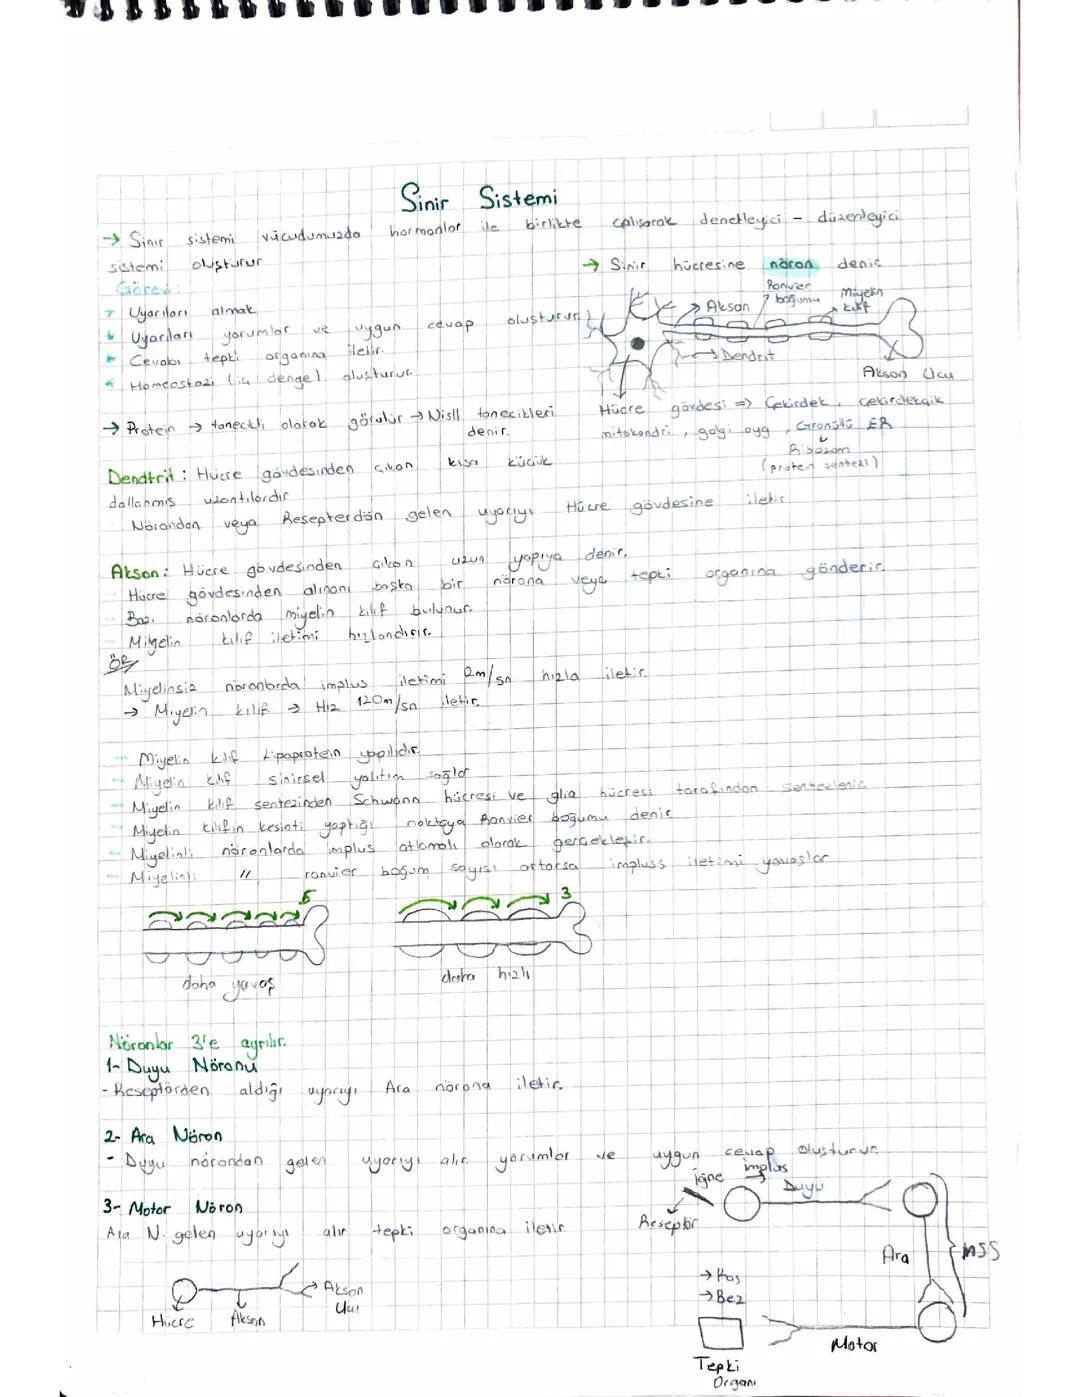 Sinir Sistemi
→ Sinir sistemi vücudumuzda hormonlar ile birlikte çalışarak denetleyici - düzenleyici
sistemi oluşturur
→ Sinir hücresine nöron denir
Görev:
Uyarıları almak
Uyarıları yorumlar ve uygun cevap oluşturur
Cevabı tepki organına iletir.
Homeostazi (iç denge) oluşturur.
Akson
Ranvier boğumu
Miyelin kılıf
Dendrit
Akson Ucu
Hücre gövdesi => Çekirdek, çekirdekçik
mitokondri, golgi ayg, Granüllü ER
Ribozom
(protein sentezi)
→ Protein → tanecikli olarak görülür → Nisll tanecikleri
denir.
Dendtrit: Hücre gövdesinden çıkan kısa küçük
dallanmış uzantılardır
Nörondan veya Resepterdön gelen uyarıyı Hücre gövdesine iletir
Akson: Hücre gövdesinden çıkan uzun yapıya denir.
Hücre gövdesinden alınanı başka bir nörona veya tepki organına gönderir.
Bazı nöronlarda miyelin kılıf bulunur.
Miyelin kılıf iletimi hızlandırır.
ÖR/
Miyelinsiz nöronlarda implus iletimi 2m/sn hızla iletir
→ Miyelin kılıf → Hız 120m/sn iletir
- Miyelin kılıf Lipoprotein yapılıdır.
- Miyelin kılıf sinirsel yalıtım sağlar
- Miyelin kılıf sentezinden Schwann hücresi ve glia hücresi tarafından sentezlenir
- Miyelin kılıfın kesinti yaptığı noktaya Ranvier boğumu denir
- Miyelinli nöronlarda implus atlamalı olarak gerçekleşir.
- Miyelinli " ranvier boğum sayısı artarsa impluss iletimi yavaşlar
5
3
daha yavaş
daha hızlı
Nöronlar 3'e ayrılır.
1- Duyu Nöronu
- Reseptörden aldığı uyarıyı Ara nörona iletir.
2- Ara Nöron
- Duyu nörondan gelen uyarıyı alır yorumlar ve uygun cevap oluşturur.
3- Motor Nöron
Ara N. gelen uyarıyı alır tepki organına iletir
Hücre
Akson
Akson Ucu
iğne
implus
Duyu
Reseptör
Ara
MSS
→ Kas
→ Bez
Motor
Tepki
Organı